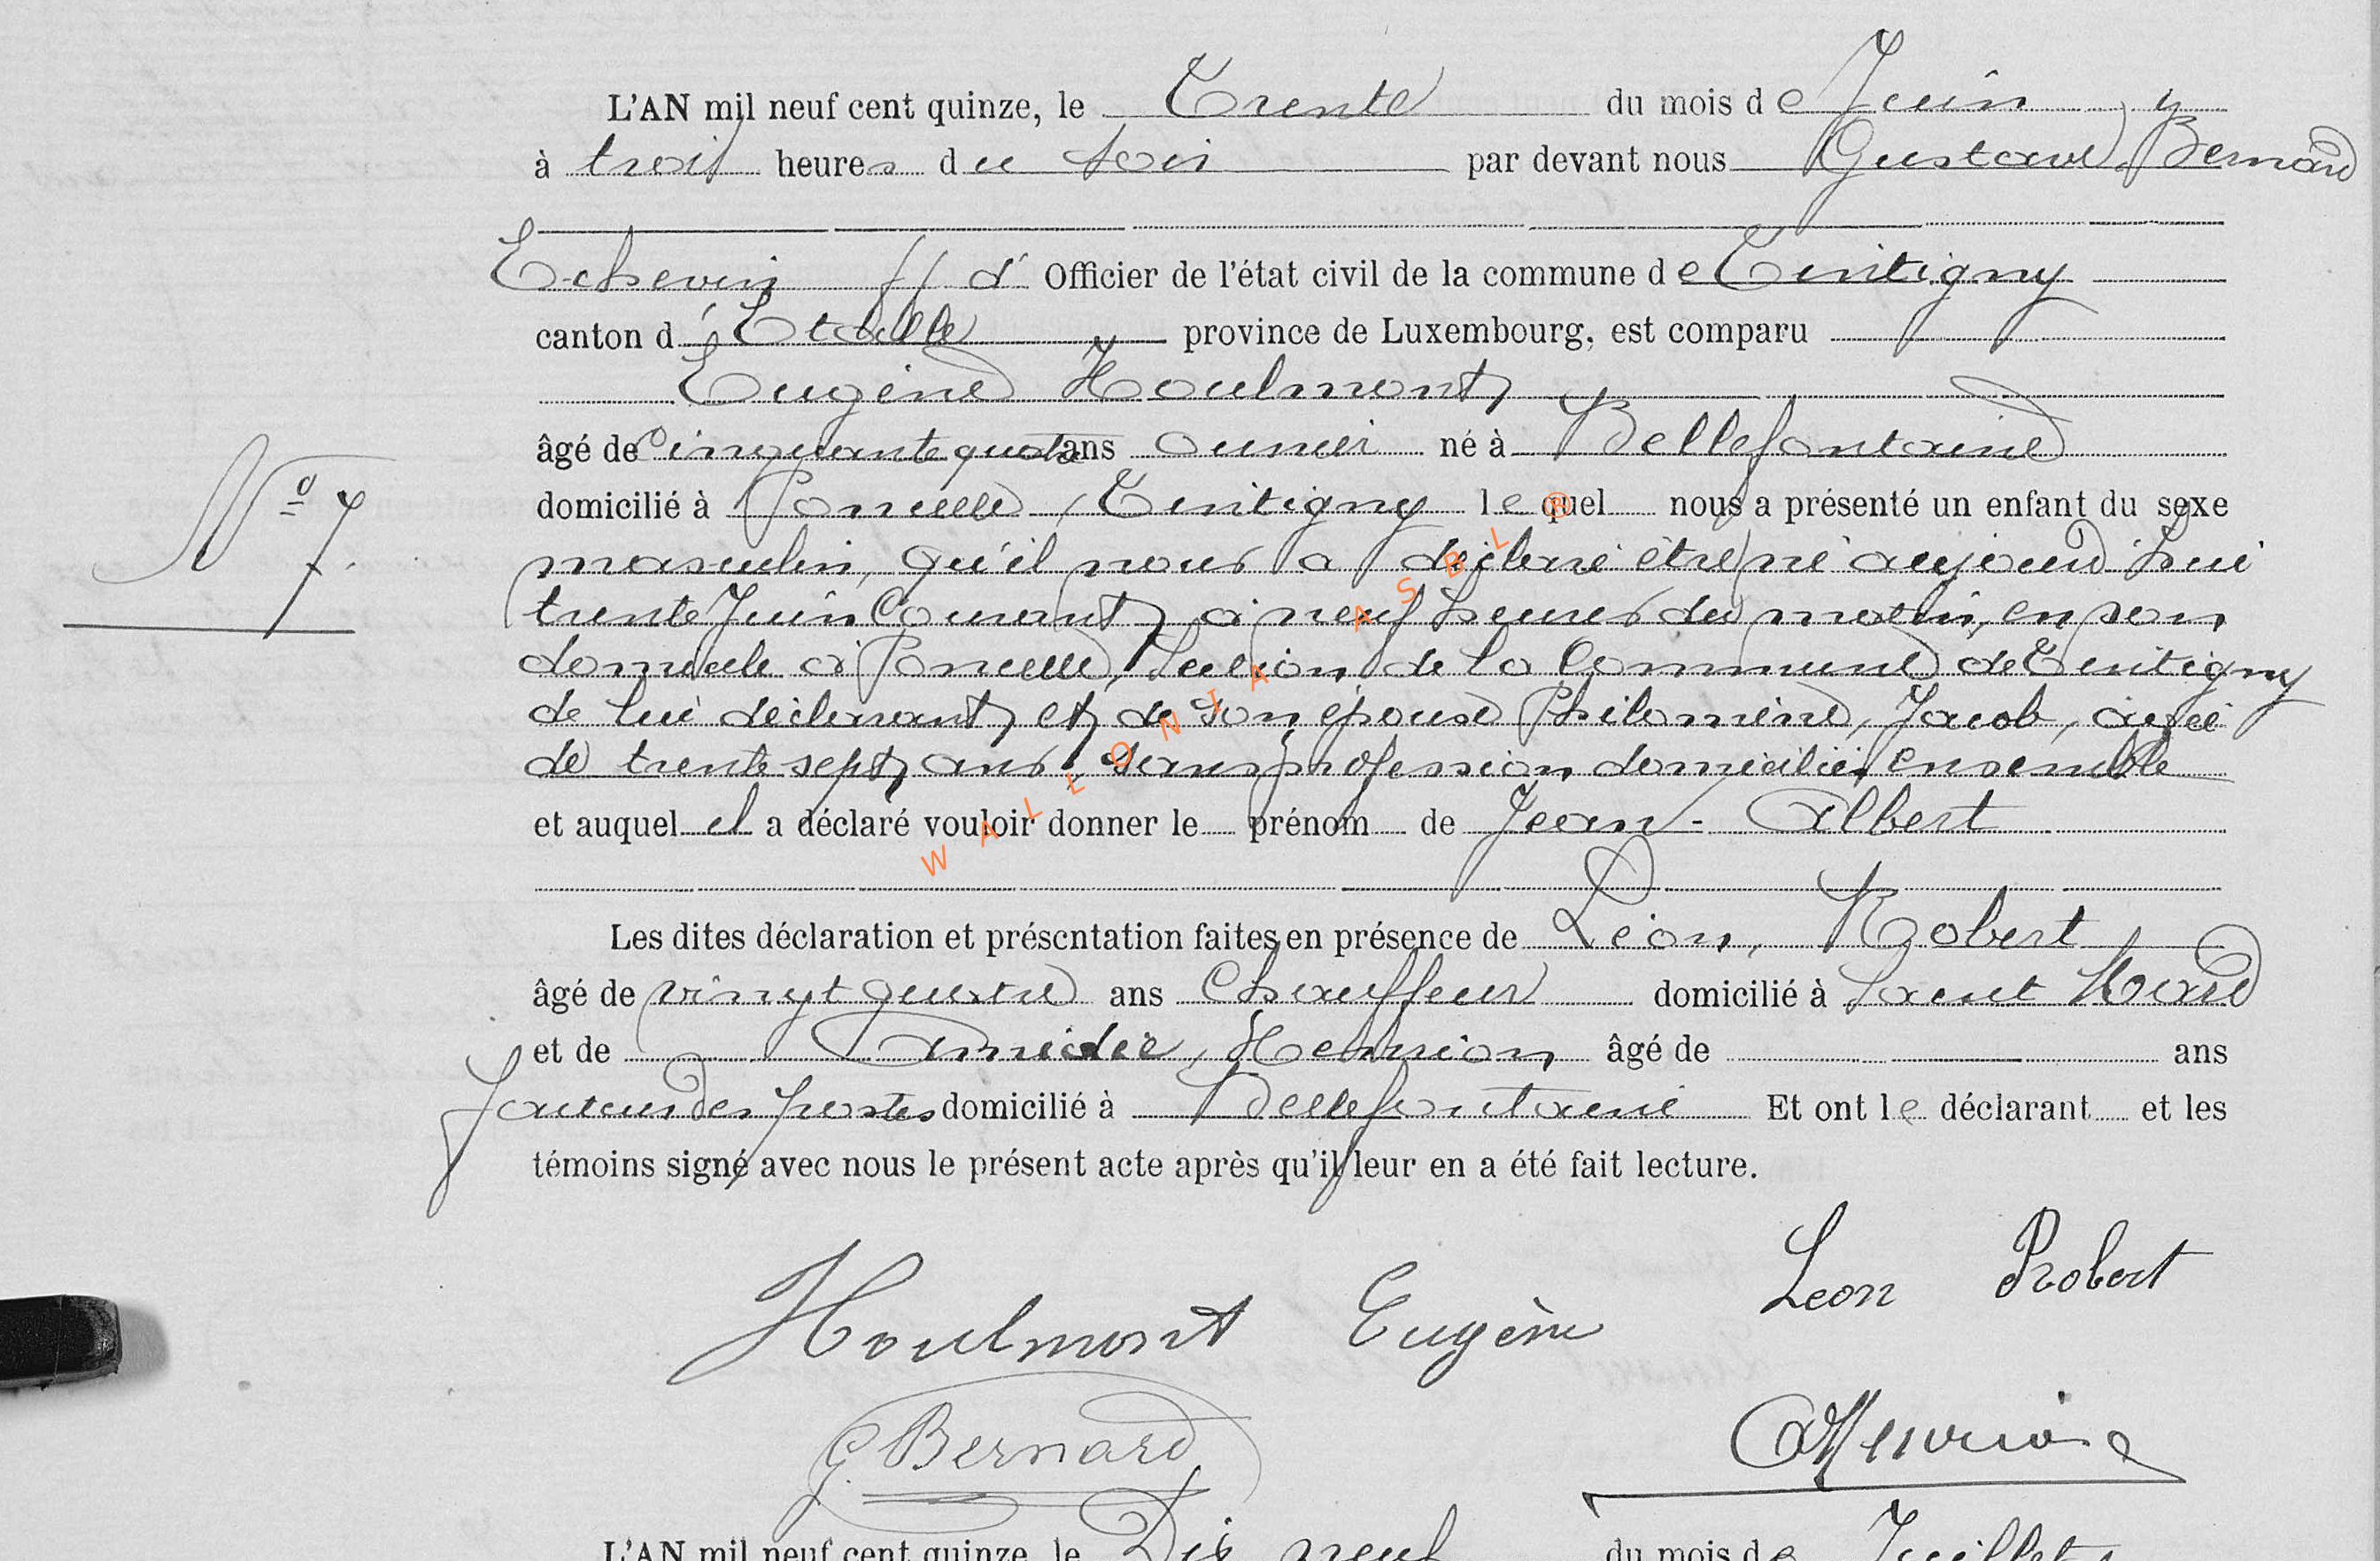 L'AN mil neuf cent quinze, le Trente du mois de Juin
à trois heures du soir par devant nous Gustave Bernard
Echevin ff d' Officier de l'état civil de la commune de Tintigny
canton d'Etalle province de Luxembourg, est comparu
Eugène Houlmont
âgé de Cinquante quatre ans ouvrier né à Bellefontaine
domicilié à Poncelle, Tintigny lequel nous a présenté un enfant du sexe
N° 7.
masculin, qu'il nous a déclaré être né aujourd'hui
trente Juin Courant à neuf heures du matin, en son
domicile à Poncelle, Section de la Commune de Tintigny
de lui déclarant et de son épouse Philomène, Jacob, agée
de trente sept ans sans profession domiciliés ensemble
et auquel il a déclaré vouloir donner le prénom de Jean-Albert
WALLONIA ASBL ®
Les dites déclaration et présentation faites en présence de Léon, Robert
âgé de vingt quatre ans Chauffeur domicilié à Saint Mard
et de Amédée, Henrion âgé de ans
facteur des postes domicilié à Bellefontaine Et ont le déclarant et les
témoins signé avec nous le présent acte après qu'il leur en a été fait lecture.
Leon Robert
Houlmont Eugène
AHenrion
G. Bernard
L'AN mil neuf cent quinze, le Dix neuf du mois de Juillet